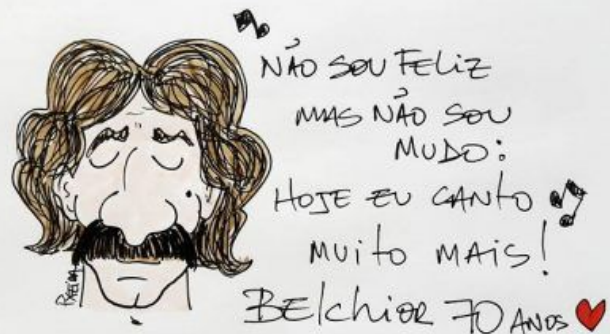 NÃO SOU FELIZ
MAS NÃO SOU
MUDO:
HOJE EU CANTO
MUITO MAIS!
BELCHIOR 70 ANOS